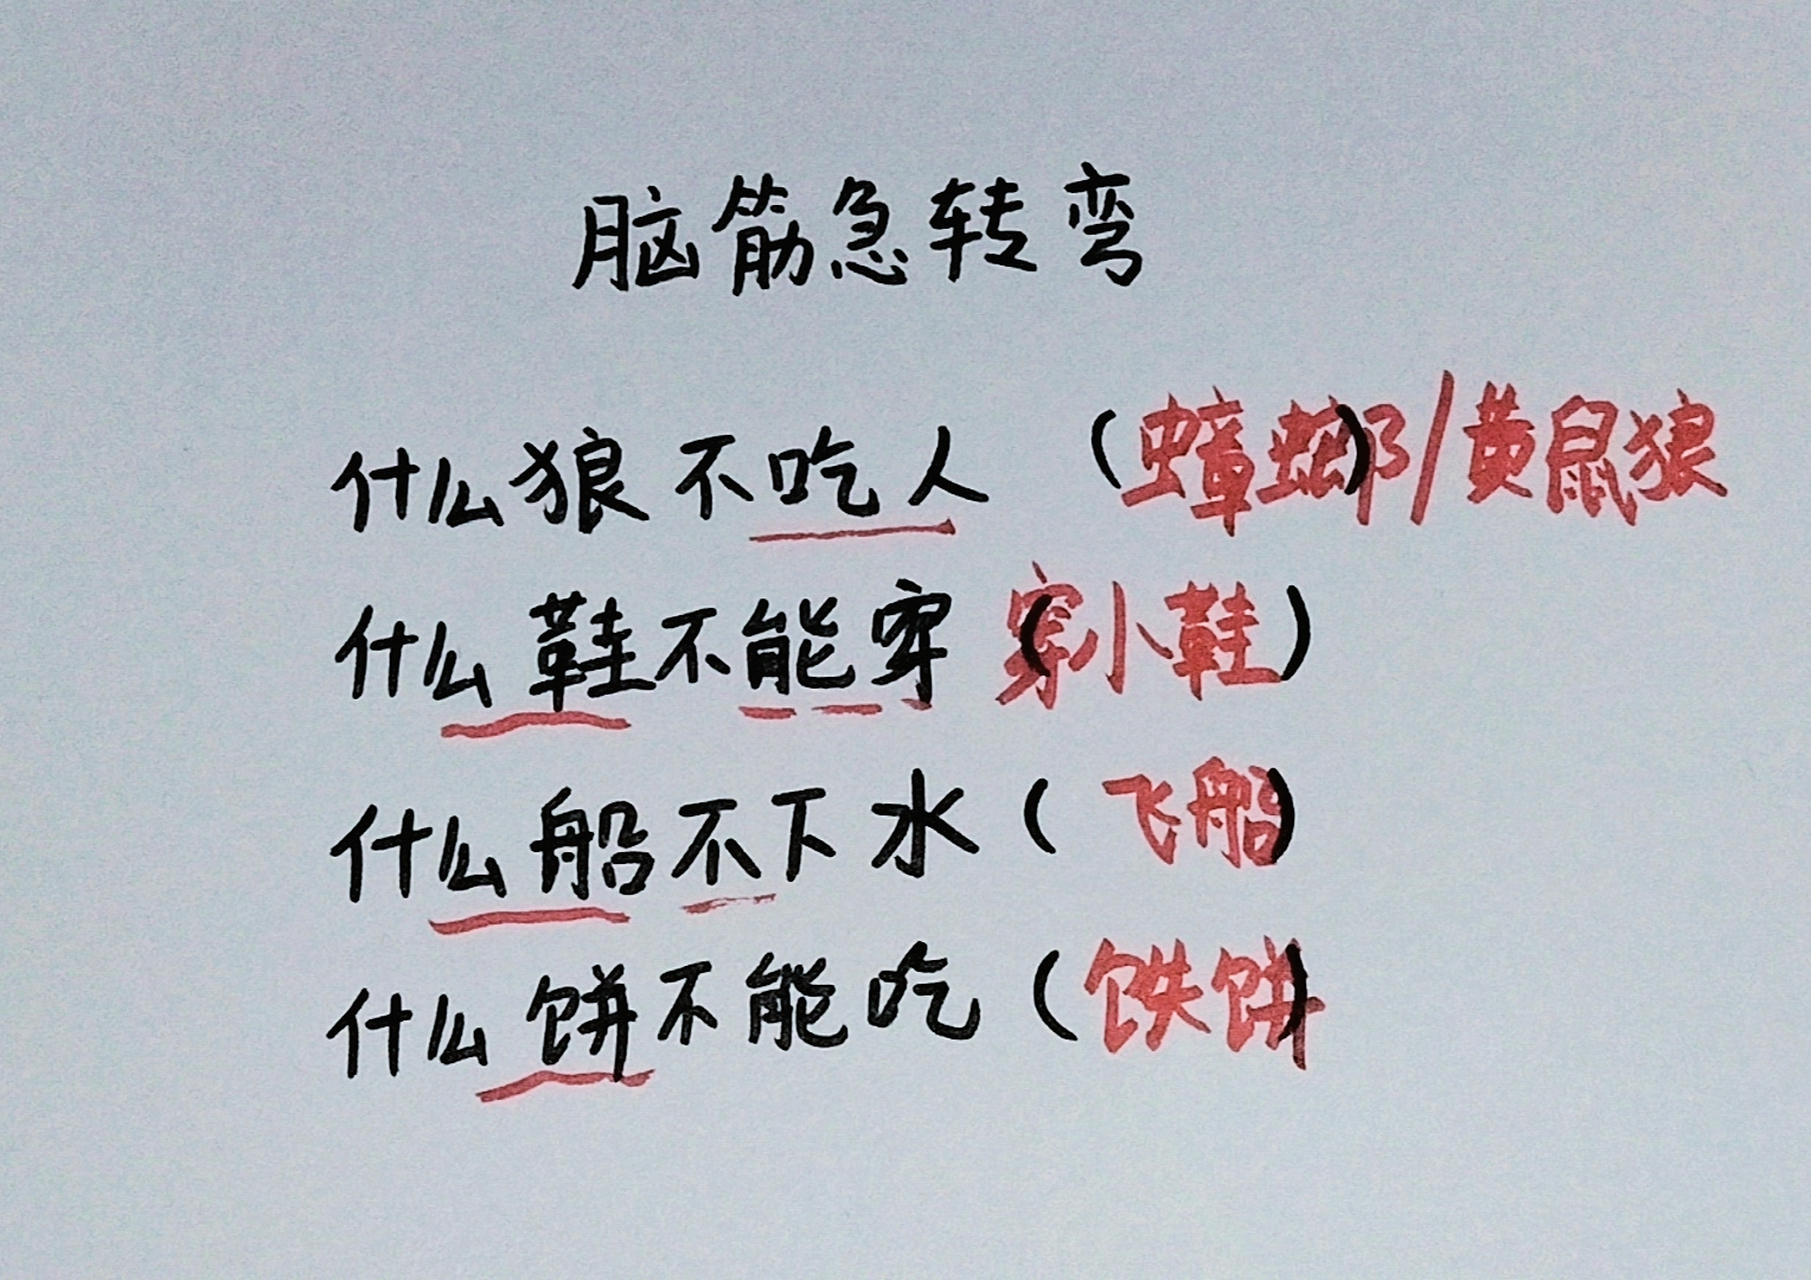 脑筋急转弯
什么狼不吃人 (蟑螂)/黄鼠狼
什么鞋不能穿 (穿小鞋)
什么船不下水 (飞船)
什么饼不能吃 (铁饼)